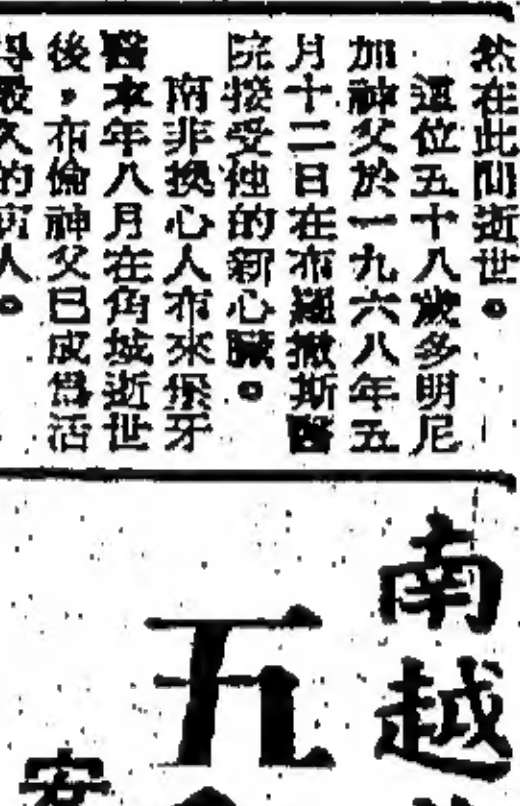 然在此間逝世。
這位五十八歲多明尼
加神父於一九六八年五
月十二日在布羅撒斯醫
院接受他的新心臟。
南非換心人布來堡牙
醫本年八月在角城逝世
後,布倫神父已成爲活
得最久的病人。
南越
五
安